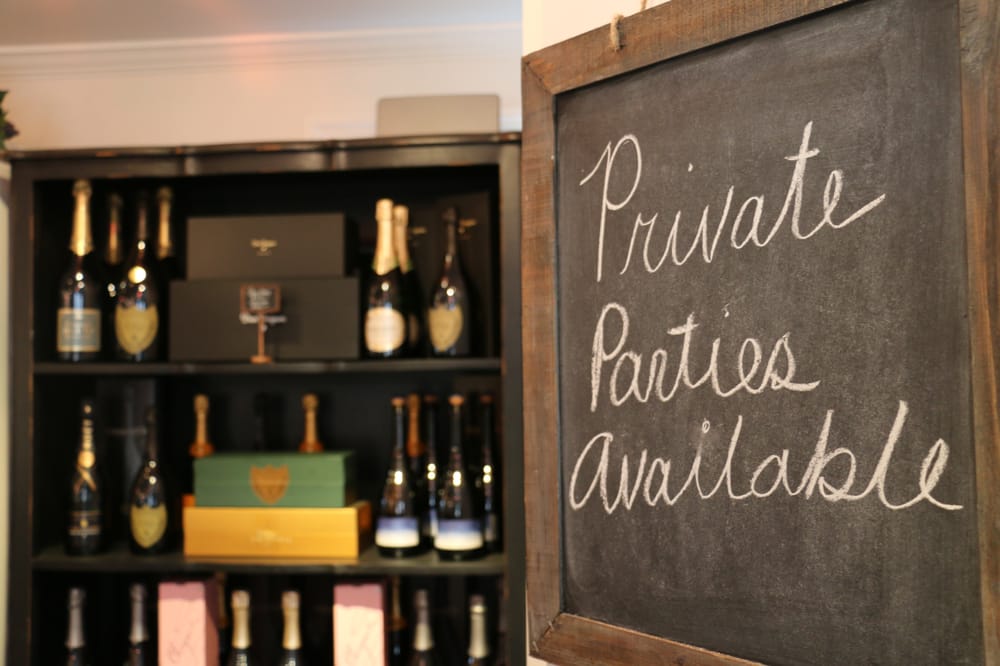 Private
Parties
available